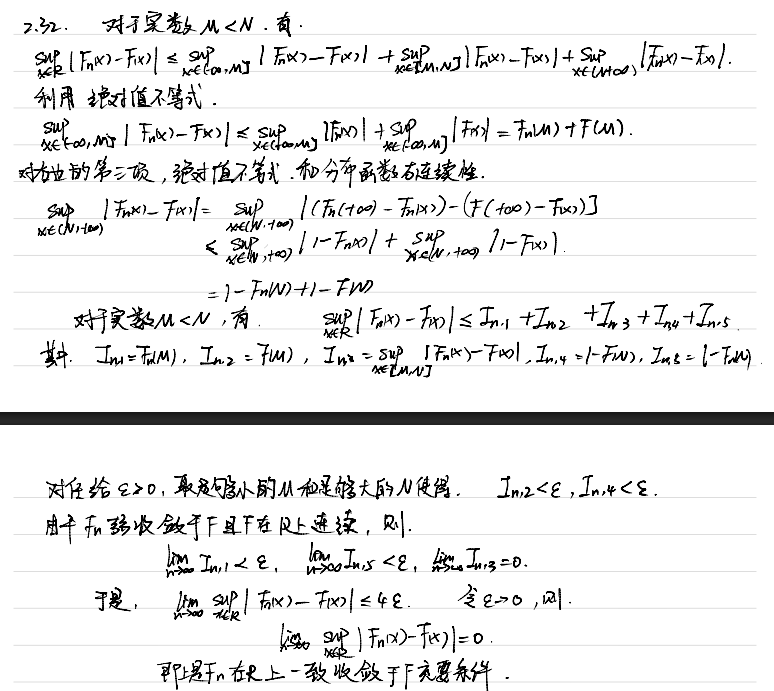 2.32. 对于实数 M<N. 有.
sup_{x∈R} |Fn(x)-F(x)| ≤ sup_{x∈(-∞,M]} |Fn(x)-F(x)| + sup_{x∈[M,N]} |Fn(x)-F(x)| + sup_{x∈(N,+∞)} |Fn(x)-F(x)|.
利用 绝对值不等式.
sup_{x∈(-∞,M]} |Fn(x)-F(x)| ≤ sup_{x∈(-∞,M]} |Fn(x)| + sup_{x∈(-∞,M]} |F(x)| = Fn(M)+F(M).
对右边的第三项, 绝对值不等式. 和分布函数右连续性.
sup_{x∈(N,+∞)} |Fn(x)-F(x)| = sup_{x∈(N,+∞)} |(Fn(+∞)-Fn(x))-(F(+∞)-F(x))|
≤ sup_{x∈(N,+∞)} |1-Fn(x)| + sup_{x∈(N,+∞)} |1-F(x)|.
= 1-Fn(N)+1-F(N)
对于实数 M<N, 有. sup_{x∈R} |Fn(x)-F(x)| ≤ In,1 + In,2 + In,3 + In,4 + In,5
其中. In,1=Fn(M), In,2=F(M), In,3=sup_{x∈[M,N]} |Fn(x)-F(x)|, In,4=1-F(N), In,5=1-Fn(N)
对任给 ε>0, 取足够小的 M 和足够大的 N 使得. In,2<ε, In,4<ε.
由于 Fn 弱收敛于 F 且 F 在 R 上连续, 则.
lim_{n→∞} In,1<ε, lim_{n→∞} In,5<ε, lim_{n→∞} In,3=0.
于是, lim_{n→∞} sup_{x∈R} |Fn(x)-F(x)| ≤ 4ε. 令 ε→0, 则.
lim_{n→∞} sup_{x∈R} |Fn(x)-F(x)|=0.
即上是 Fn 在 R 上一致收敛于 F 充要条件.